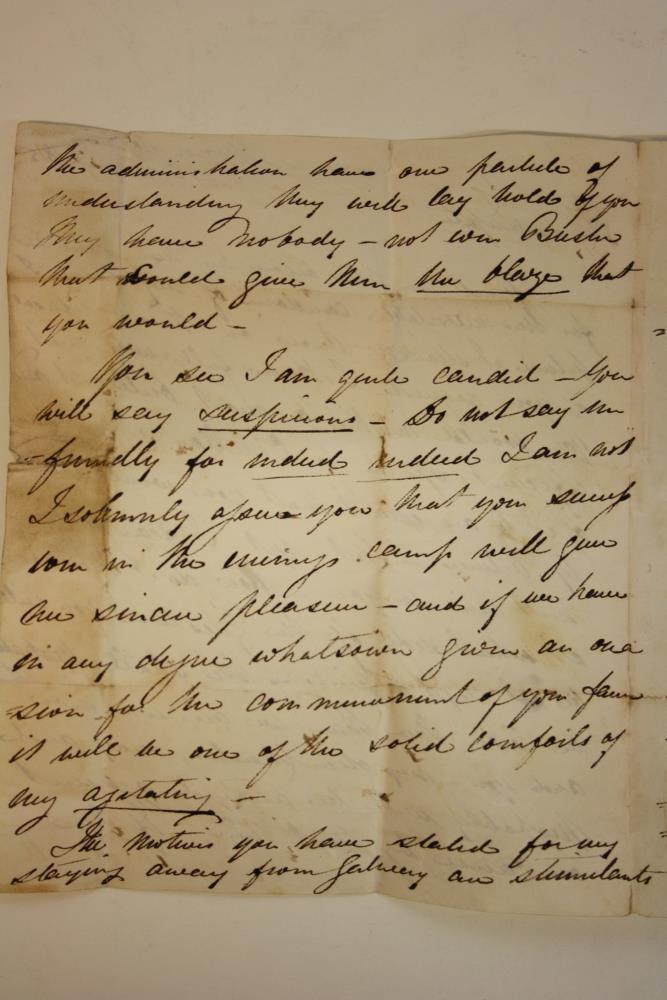 the administration have one particle of
understanding they will lay hold of you
They have nobody – not even Bushe
that could give them the blaze that
you would –
You see I am quite candid – You
will say suspicious – Do not say un
-friendly for indeed indeed I am not
I solemnly assure you that your success
even in the enemys camp will give
me sincere pleasure – and if we have
in any degree whatsoever given an occa
=sion for the commencement of your fame
it will be one of the solid comforts of
my agitating –
The motives you have stated for my
staying away from Galway are stimulants